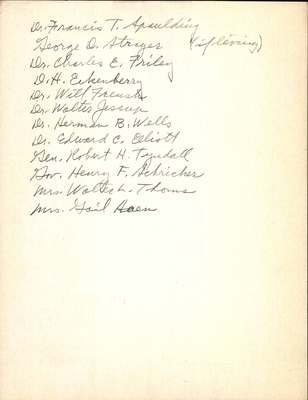 Dr. Francis T. Spaulding
George D. Strayer (if living)
Dr. Charles E. Friley
D. H. Eikenberry
Dr. Will French
Dr. Walter Jessup
Dr. Herman B. Wells
Dr. Edward C. Elliott
Gen. Robert H. Tyndall
Gov. Henry F. Schricker
Mrs. Walter L. Thoms
Mrs. Gail